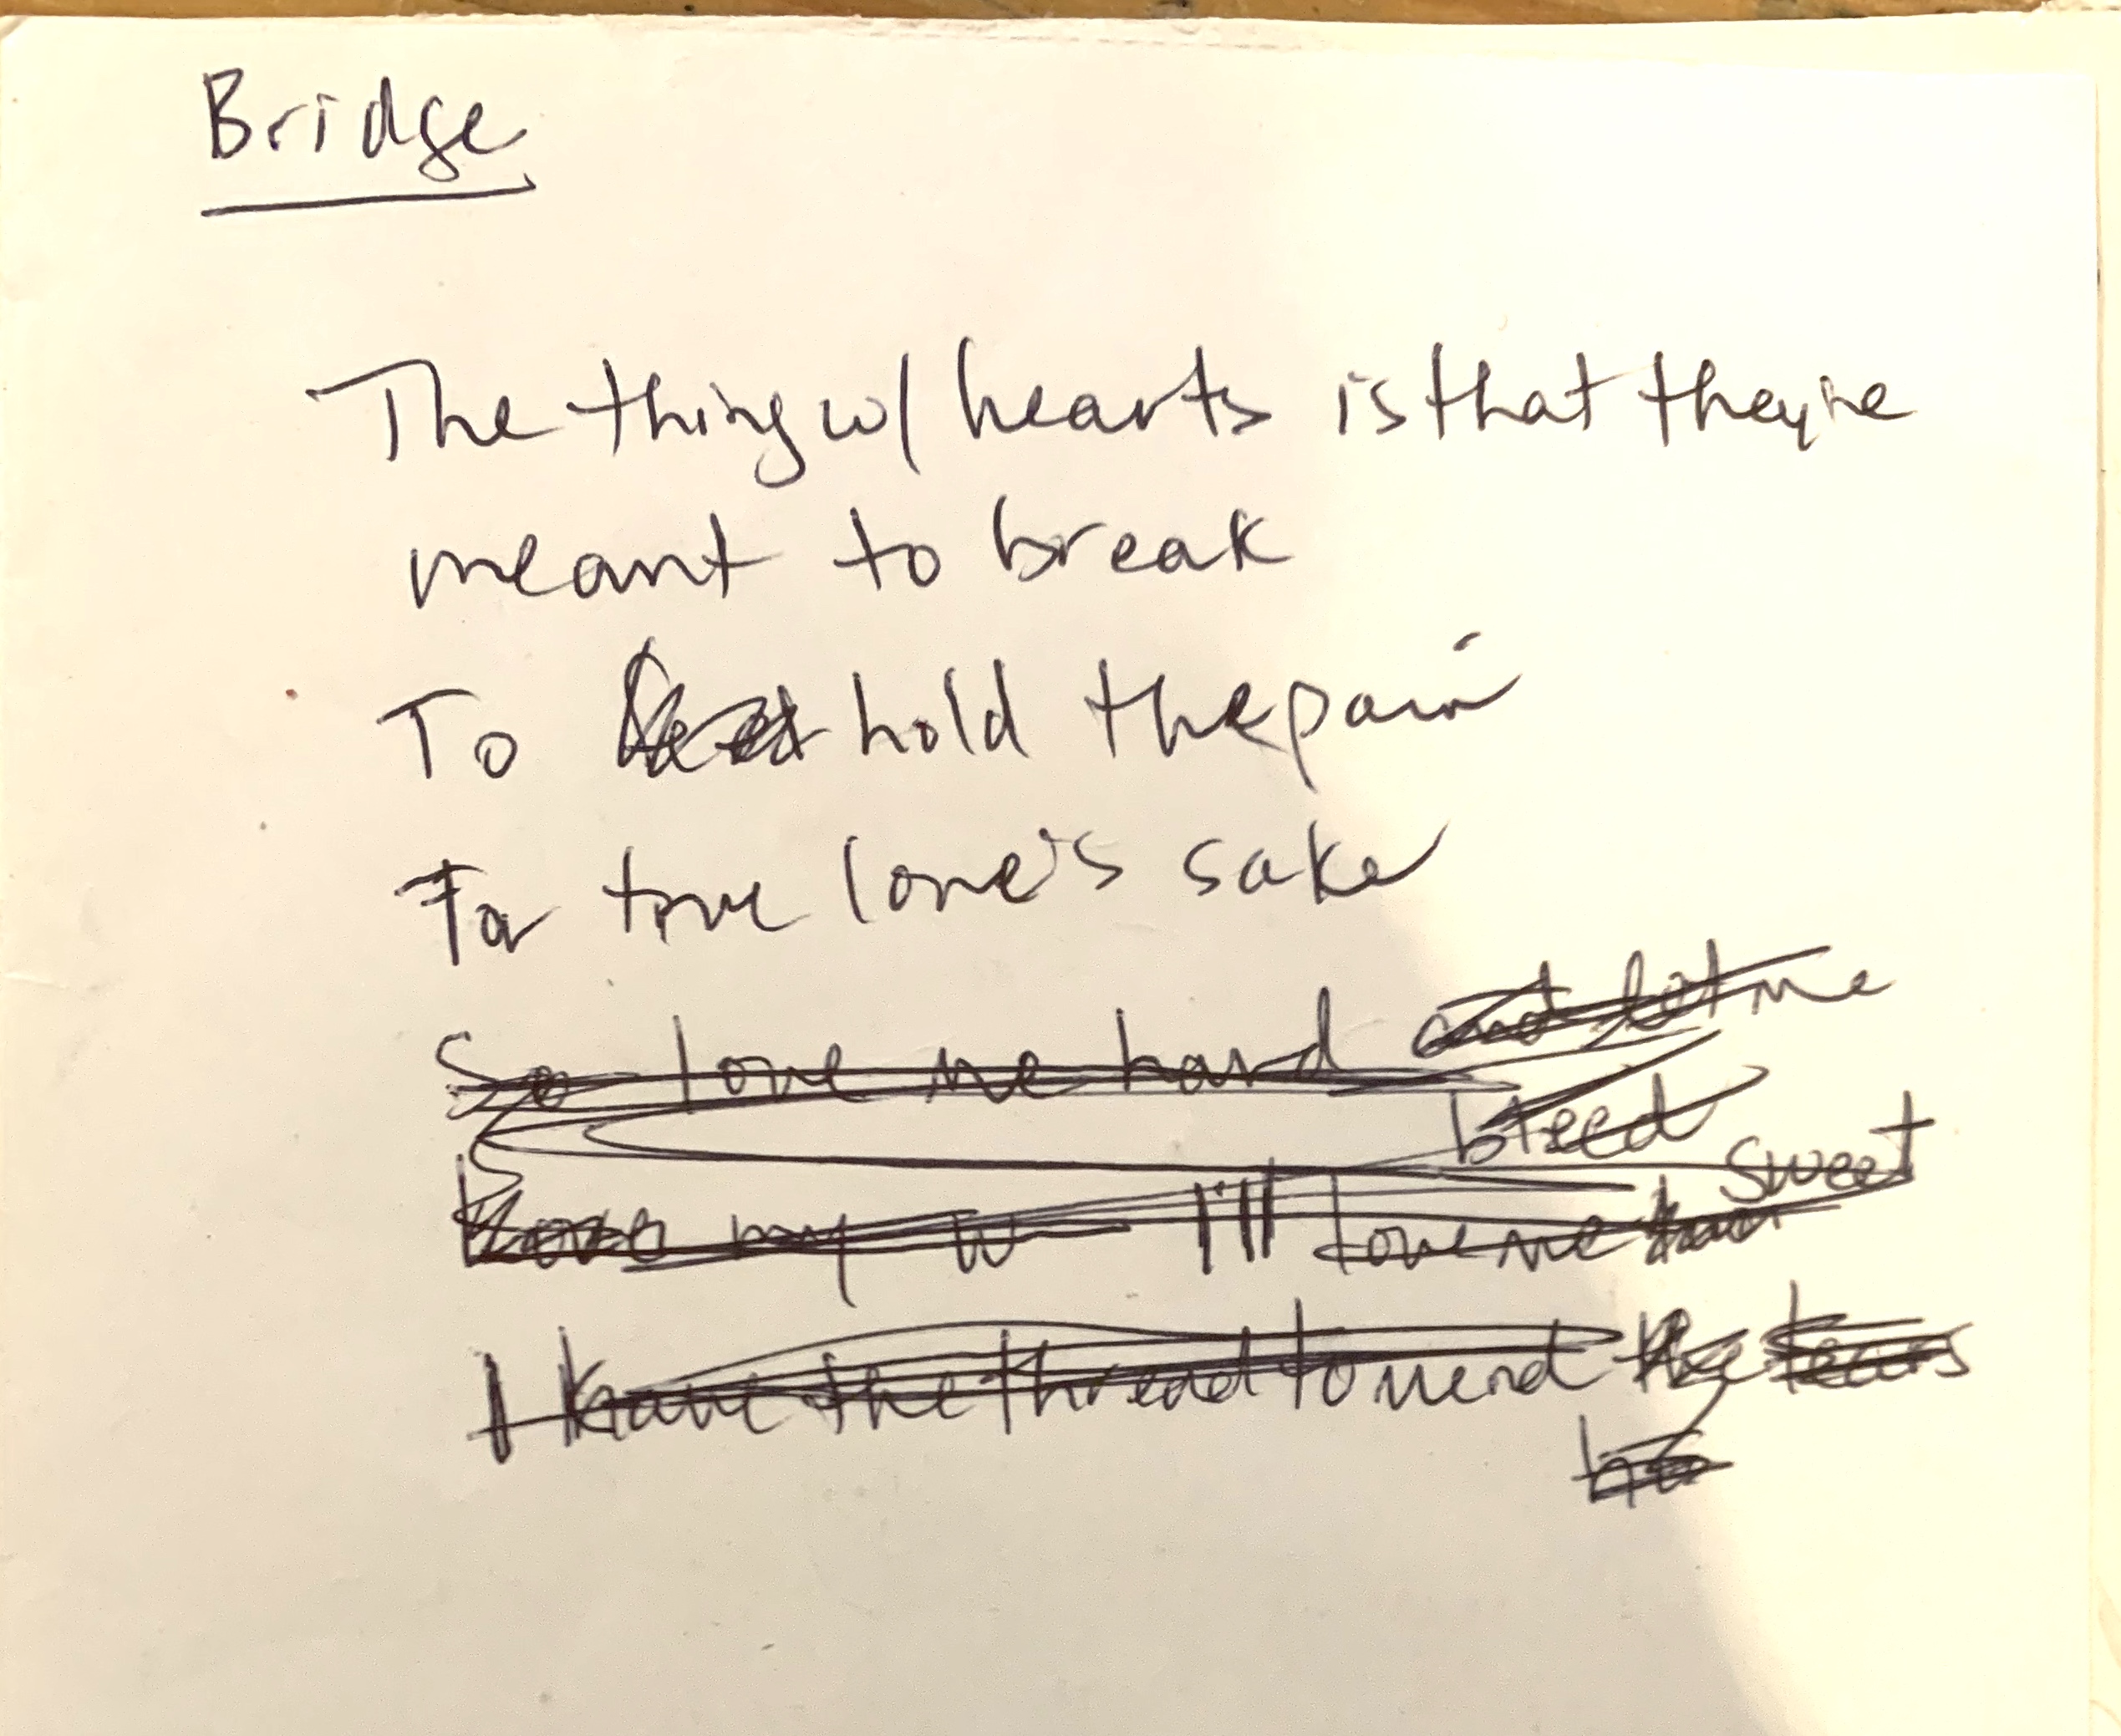 Bridge
The thing w/ hearts is that they're
meant to break
To hold the pain
For true love's sake
So love me hard and let me
bleed
sweet
my w I'll love me
I have the thread to mend the tears